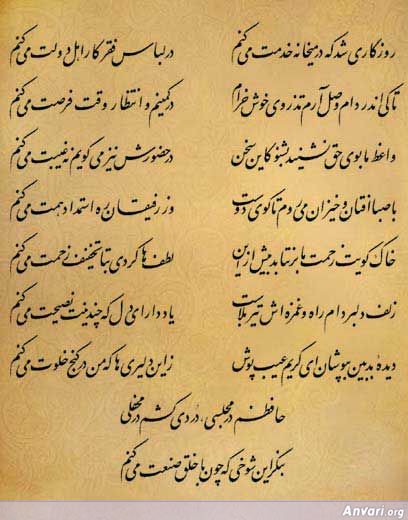 روزگاری شد که در میخانه خدمت می‌کنم در لباس فقر کار اهل دولت می‌کنم
تا کی اندر دام وصل آرم تذروی خوش خرام در کمینم و انتظار وقت فرصت می‌کنم
واعظ ما بوی حق نشنید بشنو کاین سخن در حضورش نیز می گویم نه غیبت می‌کنم
با صبا افتان و خیزان می روم تا کوی دوست وز رفیقان ره استمداد همت می‌کنم
خاک کویت زحمت ما برنتابد بیش از این لطف ها کردی بتا تخفیف زحمت می‌کنم
زلف دلبر دام راه و غمزه اش تیر بلاست یاد دار ای دل که چندینت نصیحت می‌کنم
دیدهٔ بدبین بپوشان ای کریم عیب پوش زین دلیری ها که من در کنج خلوت می‌کنم
حافظم در مجلسی، دردی کشم در محفلی
بنگر این شوخی که چون با خلق صنعت می‌کنم
Anvari.org